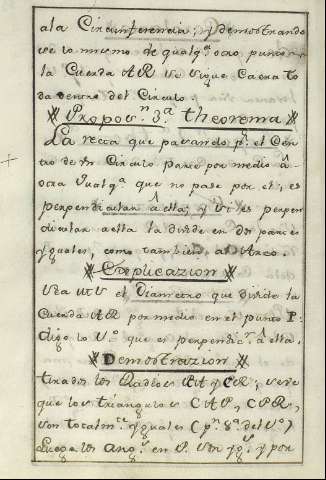 ala Circunferencia; y demostrando
se lo mismo de qualq.ª otro punto
la Cuerda AR se sigue Caera to
da dentro del Circulo.
Propos.n 3.ª theorema
La recta que pasando p.r el Cen
tro de un Circulo parte por medio â
otra qualq.ª que no pase por el; es
perpendicular â ella; y si es perpen
dicular aella la divide en dos partes
yguales, como tambien al Arco.
Explicazion
Sea el Diametro que divide la
Cuerda AR por medio en el punto P:
digo lo 1.º que es perpendic.r â ella.
Demostrazion
tirados los Radios CA y CR; se ve
que los triangulos CAP, CPR,
son totalm.te yguales (p.n 8.ª del 1.º)
Luego los ang.s en P. son yg.s y por